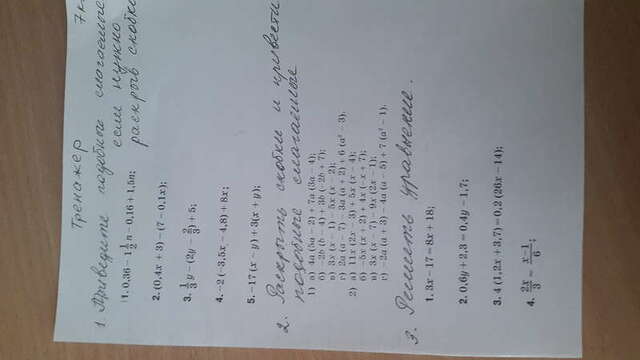 Тренажер 7к
1. Приведите подобные слагаемые
если нужно
раскрыв скобки
1. 0,36 − 1 1/2 n − 0,16 + 1,5n;
2. (0,4x + 3) − (7 − 0,1x);
3. 1/3 y − (2y − 2/3) + 5;
4. −2 (−3,5x − 4,8) + 8x;
5. −17 (x − y) + 3(x + y);
2. Раскрыть скобки и привести
подобные слагаемые
1) а) 4a (5a − 2) + 7a (3a − 4);
б) −2b (b − 4) + 3b (−2b + 7);
в) 3x (x − 1) − 5x (x − 2);
г) 2a (a − 7) − 3a (a + 2) + 6 (a² − 3).
2) а) 11x (2x − 3) + 5x (x − 4);
б) −5x (x + 2) + 4x (−x + 7);
в) 3x (x − 7) − 9x (2x − 1);
г) −2a (a + 3) − 4a (a − 5) + 7 (a² − 1).
3. Решить уравнение.
1. 3x − 17 = 8x + 18;
2. 0,6y + 2,3 = 0,4y − 1,7;
3. 4 (1,2x + 3,7) = 0,2 (26x − 14);
4. 2x/3 = x−1/6;